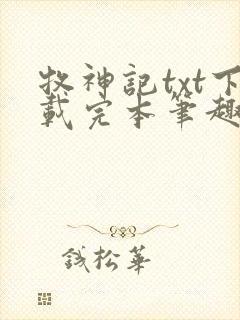 牧神記txt下
載完本筆趣
錢松華